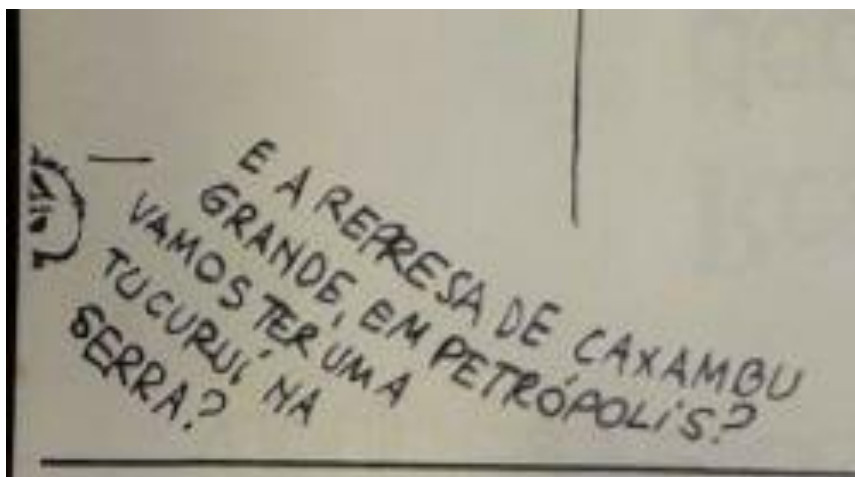 E A REPRESA DE CAXAMBU
GRANDE, EM PETRÓPOLIS?
VAMOS TER UMA
TUCURUÍ NA
SERRA?